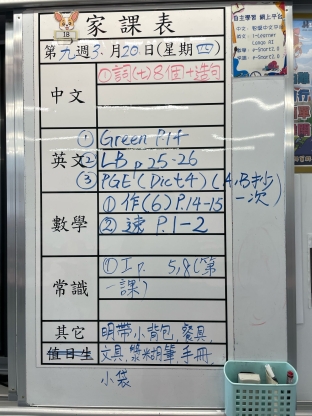 18
家課表
第九週3月20日(星期四)
自主學習 網上平台
中文
①詞(七)8個+造句
英文
①Green P.14
②LB p.25-26
③PGE(Dict4)(A,B抄一次)
數學
①作(6)P.14-15
②速 P.1-2
常識
①工p. 5,8(第一課)
其它
明帶小背包,餐具,
值日生
文具,漿糊筆,手冊
小袋